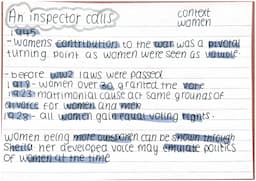 An inspector calls
context
women
1945
- womens contribution to the war was a pivotal
turning point as women were seen as valuble.
- before ww2 laws were passed
1918 - women over 30 granted the vote
1923 matrimonial cause act same grounds of
divorce for women and men
1928 - all women gain equal voting rights.
women being more outspoken can be shown through
Sheila her developed voice may emulate politics
of women at the time